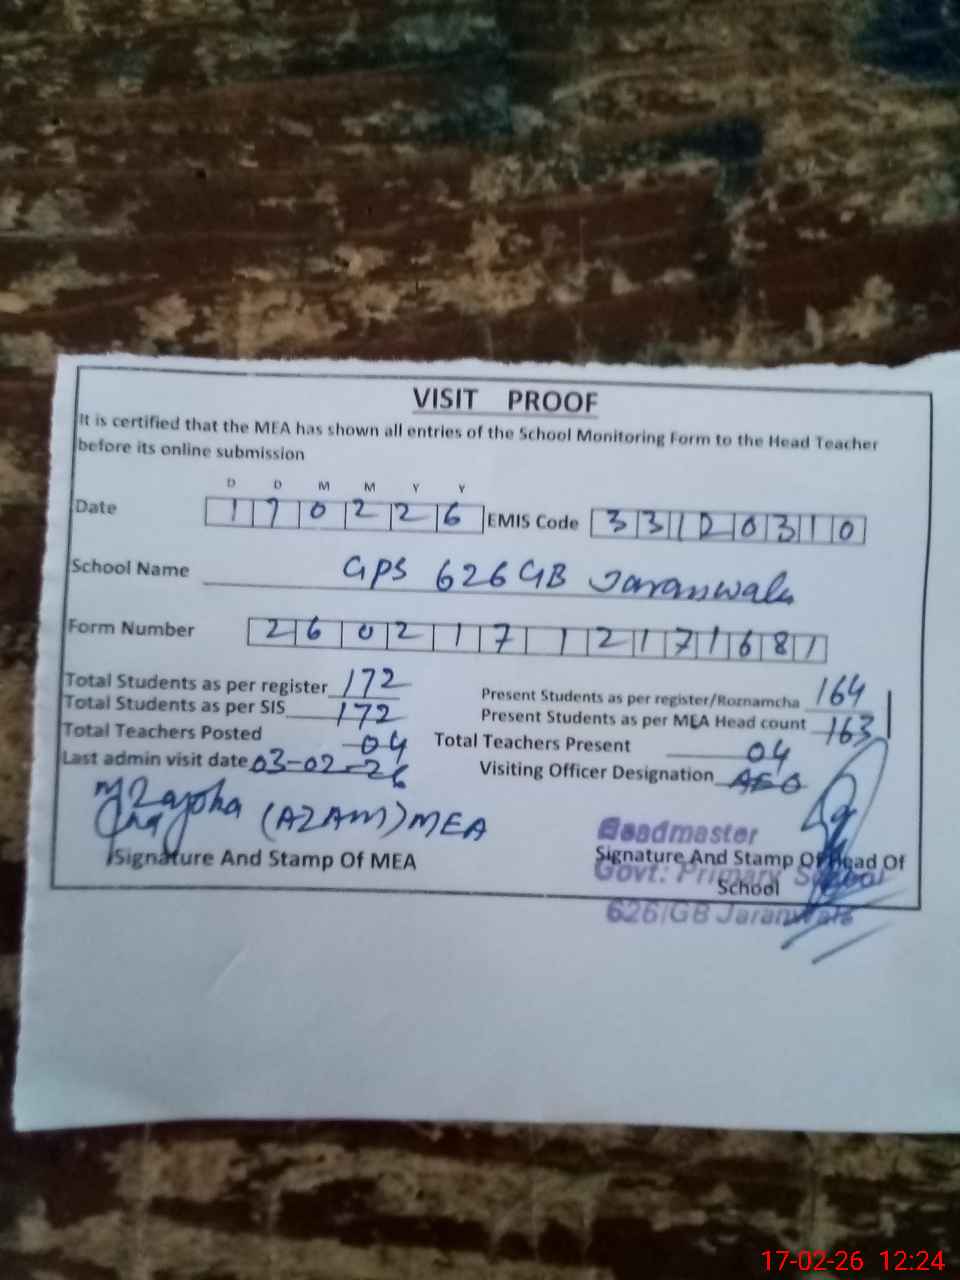 VISIT PROOF
It is certified that the MEA has shown all entries of the School Monitoring Form to the Head Teacher
before its online submission
D D M M Y Y
Date 170226 EMIS Code 33120310
School Name GPS 626 GB Jaranwala
Form Number 2602171217681
Total Students as per register 172
Present Students as per register/Roznamcha 164
Total Students as per SIS 172
Present Students as per MEA Head count 163
Total Teachers Posted 04
Total Teachers Present 04
Last admin visit date 03-02-26
Visiting Officer Designation AEO
(AZAM) MEA
Signature And Stamp Of MEA
Headmaster
Signature And Stamp Of Head Of
School
Govt: Primary School
626/GB Jaranwala
17-02-26 12:24